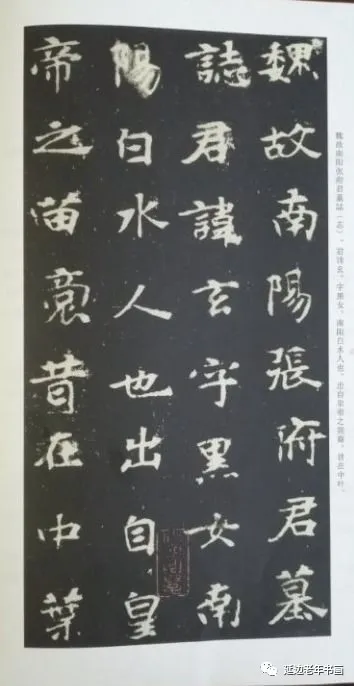 魏故南陽張府君墓
誌君諱玄字黑女南
陽白水人也出自皇
帝之苗裔昔在中葉
魏故南阳张府君墓誌（志）。君讳玄，字黑女，南阳白水人也。出自皇帝之苗裔，昔在中叶，
延边老年书画